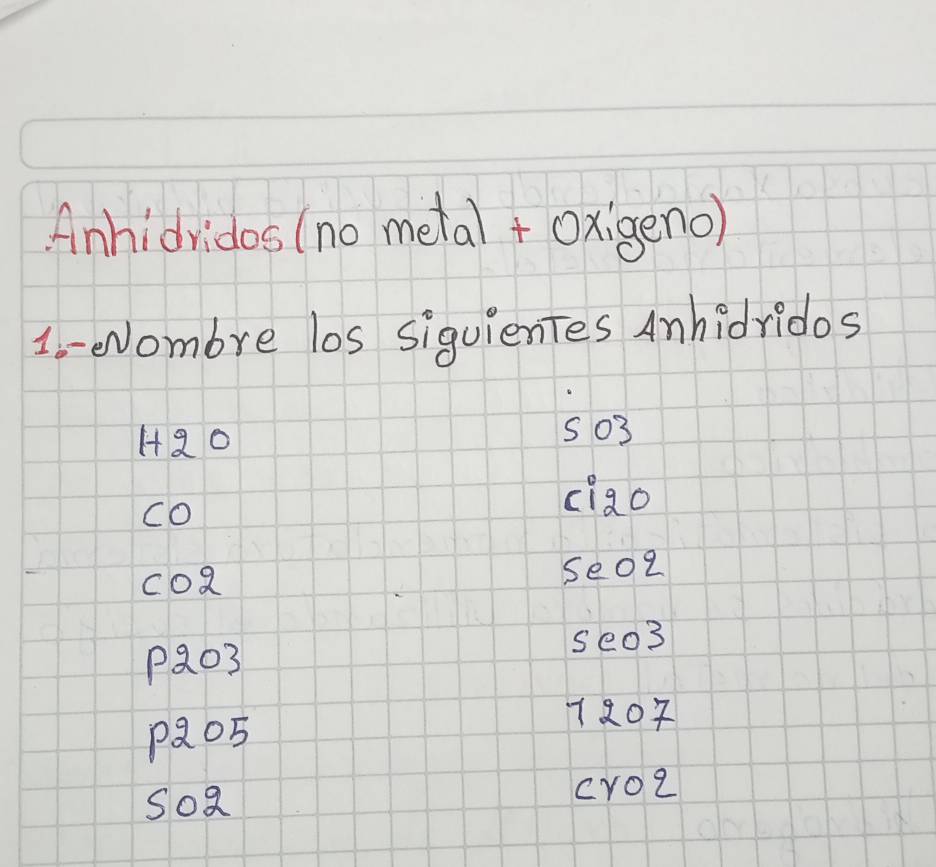 Anhidridos (no metal + Oxigeno)
1.- Nombre los siguientes Anhidridos
H2O
CO
CO2
P2O3
P2O5
SO2
SO3
Ci2O
SeO2
SeO3
I2O7
CrO2